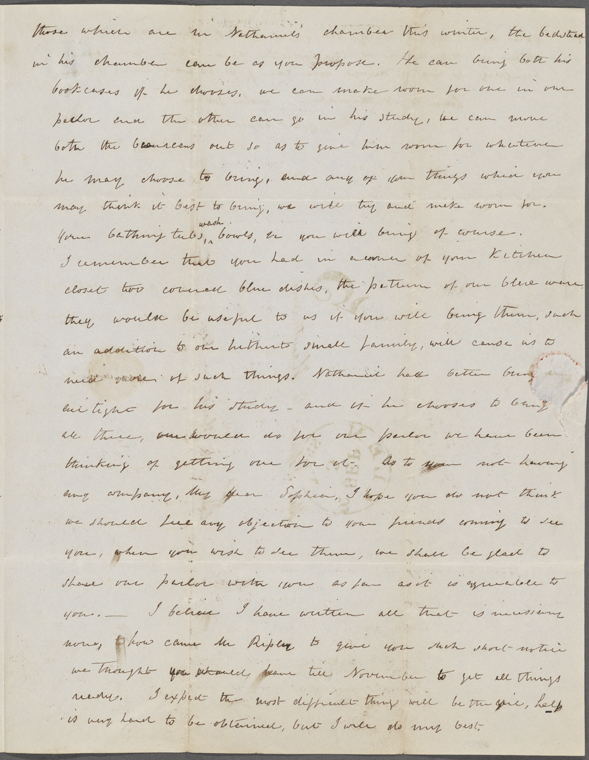 those which are in Nathaniel's chamber this winter, the bedstead
in his chamber can be as you propose. He can bring both his
bookcases if he chooses, we can make room for one in our
parlor and the other can go in his study, we can move
both the bureaus out so as to give him room for whatever
he may choose to bring, and any of your things which you
may think it best to bring, we will try and make room for.
Your bathing tubs, wash bowls, &c you will bring of course.
I remember that you had in a corner of your Kitchen
closet two covered blue dishes, the pattern of our blue ware
they would be useful to us if you will bring them, such
an addition to our hitherto small family, will cause us to
need more of such things. Nathaniel had better bring
airtight for his study - and if he chooses to bring
all three, one would do for our parlor we have been
thinking of getting one for it. As to your not having
any company, My dear Sophia, I hope you do not think
we should feel any objection to your friends coming to see
you, when you wish to see them, we shall be glad to
share our parlor with you as far as it is agreeable to
you. — I believe I have written all that is necessary
now, how came Mr Ripley to give you such short notice
we thought you would have till November to get all things
ready. I expect the most difficult thing will be the girl, help
is very hard to be obtained, but I will do my best.